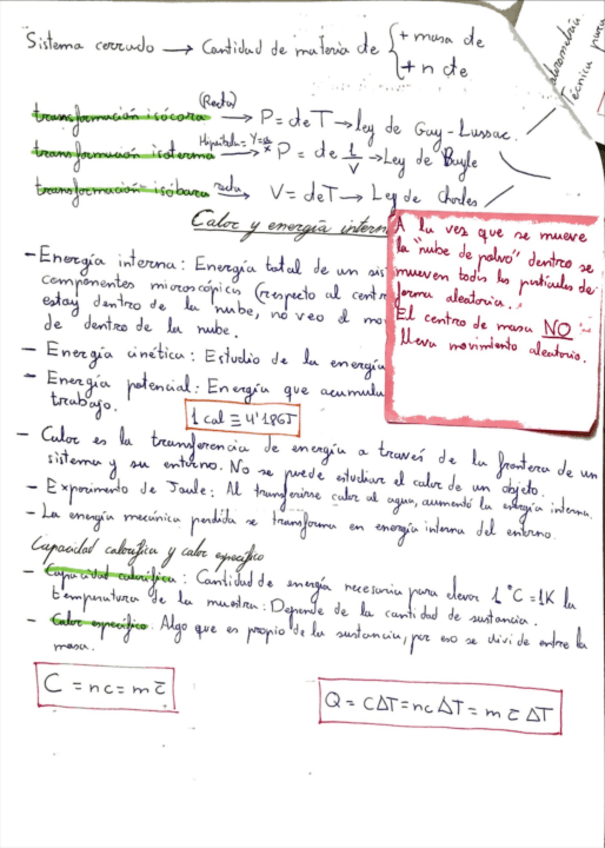 Sistema cerrado → Cantidad de materia de { + masa de
+ n de
Técnica para
(Recta)
transformación isócora → P = cte T → ley de Gay-Lussac.
Hipérbola = Y = a/x
transformación isoterma → P = cte 1/V → Ley de Boyle
transformación isóbara recta → V = cte T → Ley de Charles
Calor y energía intern
- Energía interna: Energía total de un sis
componentes microscópicos (respecto al centr
estoy dentro de la nube, no veo el mo
de dentro de la nube.
- Energía cinética: Estudio de la energía
- Energía potencial: Energía que acumula
trabajo.
1 cal ≡ 4'186J
A la vez que se mueve
la "nube de polvo" dentro se
mueven todas las partículas de
forma aleatoria.
El centro de masa NO
lleva movimiento aleatorio.
- Calor es la transferencia de energía a través de la frontera de un
sistema y su entorno. No se puede estudiar el calor de un objeto.
- Experimento de Joule: Al transferirse calor al agua, aumentó la energía interna.
- La energía mecánica perdida se transforma en energía interna del entorno.
Capacidad calorífica y calor específico
- Capacidad calorífica: Cantidad de energía necesaria para elevar 1°C = 1K la
temperatura de la muestra: Depende de la cantidad de sustancia.
- Calor específico. Algo que es propio de la sustancia, por eso se divide entre la
masa.
C = nc = m c̄
Q = CΔT = nc ΔT = m c̄ ΔT